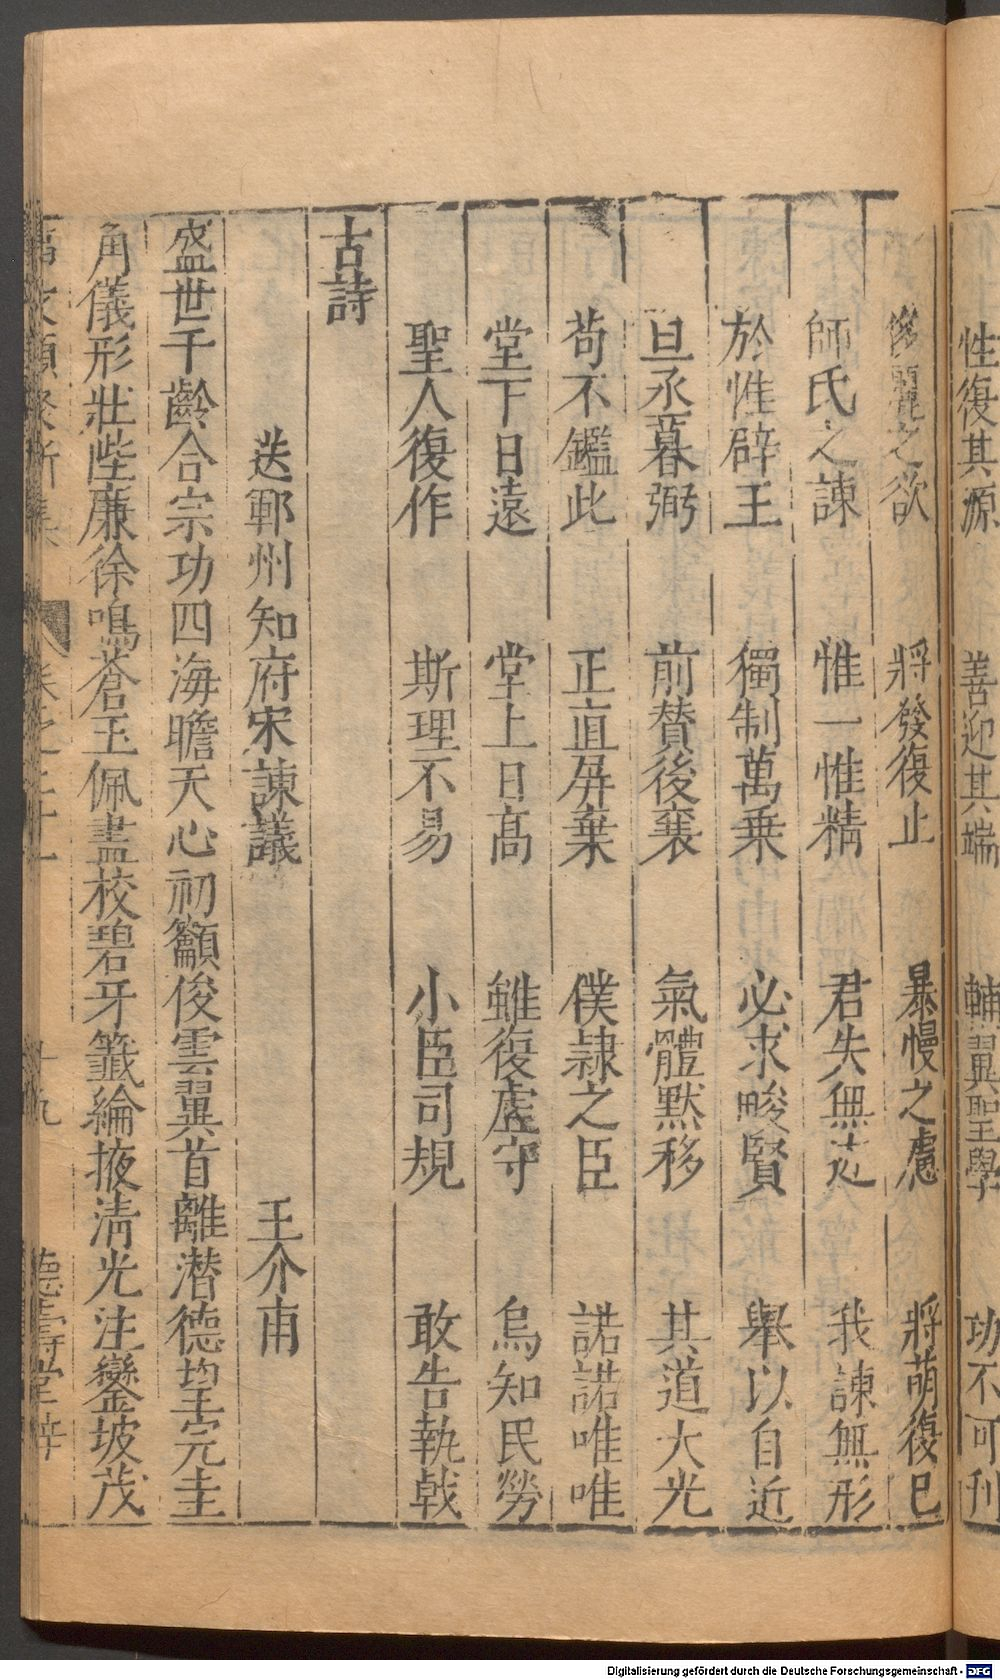 性復其源　善迎其端　輔翼聖學　功不可刊
麗之欲　將發復止　暴慢之慮　將萌復已
師氏之諫　惟一惟精　君失無迹　我諫無形
於惟辟王　獨制萬乗　必求畯賢　舉以自近
旦丞暮弼　前賛後襄　氣體黙移　其道大光
苟不鑑此　正直屏棄　僕隷之臣　諾諾唯唯
堂下日遠　堂上日髙　雖復虚守　烏知民勞
聖人復作　斯理不易　小臣司規　敢告執戟
古詩
送鄆州知府宋諫議　王介甫
盛世千齡合宗功四海瞻天心初籲俊雲翼首離潜德望完圭
角儀形壯陛廉徐鳴蒼玉佩盡校碧牙籖綸掖清光注鑾坡茂
事文類聚新集　卷之二十一　十九　德壽堂梓
Digitalisierung gefördert durch die Deutsche Forschungsgemeinschaft - DFG